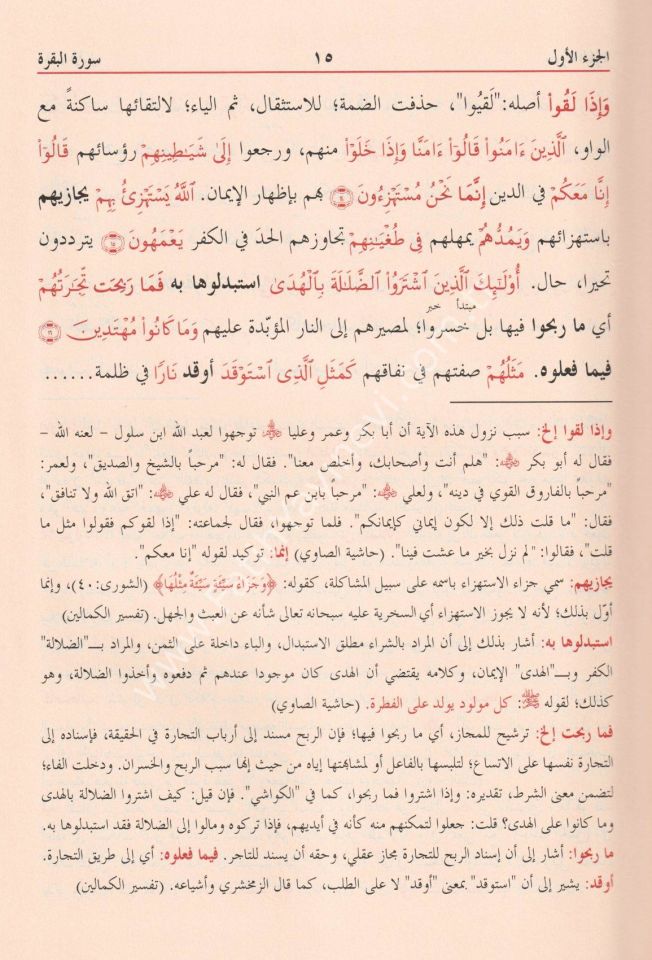 الجزء الأول ١٥ سورة البقرة
وَإِذَا لَقُوا۟ أصله:"لَقِيُوا"، حذفت الضمة؛ للاستثقال، ثم الياء؛ لالتقائها ساكنةً مع
الواو، ٱلَّذِينَ ءَامَنُوا۟ قَالُوٓا۟ ءَامَنَّا وَإِذَا خَلَوْا۟ منهم، ورجعوا إِلَىٰ شَيَـٰطِينِهِمْ رؤسائهم قَالُوٓا۟
إِنَّا مَعَكُمْ في الدين إِنَّمَا نَحْنُ مُسْتَهْزِءُونَ ١٤ بهم بإظهار الإيمان. ٱللَّهُ يَسْتَهْزِئُ بِهِمْ يجازيهم
باستهزائهم وَيَمُدُّهُمْ يمهلهم فِى طُغْيَـٰنِهِمْ تجاوزهم الحدَ في الكفر يَعْمَهُونَ ١٥ يترددون
تحيرا، حال. أُو۟لَـٰٓئِكَ ٱلَّذِينَ ٱشْتَرَوُا۟ ٱلضَّلَـٰلَةَ بِٱلْهُدَىٰ استبدلوها به فَمَا رَبِحَت تِّجَـٰرَتُهُمْ
مبتدأ خبر
أي ما ربحوا فيها بل خسروا؛ لمصيرهم إلى النار المؤبّدة عليهم وَمَا كَانُوا۟ مُهْتَدِينَ ١٦
فيما فعلوه. مَثَلُهُمْ صفتهم في نفاقهم كَمَثَلِ ٱلَّذِى ٱسْتَوْقَدَ أوقد نَارًا في ظلمة......
وإذا لقوا إلخ: سبب نزول هذه الآية أن أبا بكر وعمر وعليا ﵃ توجهوا لعبد الله ابن سلول - لعنه الله -
فقال له أبو بكر ﵁: "هلم أنت وأصحابك، وأخلص معنا". فقال له: "مرحباً بالشيخ والصديق"، ولعمر:
"مرحباً بالفاروق القوي في دينه"، ولعلي ﵁: "مرحباً بابن عم النبي"، فقال له علي ﵁: "اتق الله ولا تنافق"،
فقال: "ما قلت ذلك إلا لكون إيماني كإيمانكم". فلما توجهوا، فقال لجماعته: "إذا لقوكم فقولوا مثل ما
قلت"، فقالوا: "لم نزل بخير ما عشت فينا". (حاشية الصاوي) إنما: توكيد لقوله "إنا معكم".
يجازيهم: سمي جزاء الاستهزاء باسمه على سبيل المشاكلة، كقوله: ﴿وَجَزَاءُ سَيِّئَةٍ سَيِّئَةٌ مِثْلُهَا﴾ (الشورى:٤٠)، وإنما
أوّل بذلك؛ لأنه لا يجوز الاستهزاء أي السخرية عليه سبحانه تعالى شأنه عن العبث والجهل. (تفسير الكمالين)
استبدلوها به: أشار بذلك إلى أن المراد بالشراء مطلق الاستبدال، والباء داخلة على الثمن، والمراد بـ"الضلالة"
الكفر وبـ"الهدى" الإيمان، وكلامه يقتضي أن الهدى كان موجودا عندهم ثم دفعوه وأخذوا الضلالة، وهو
كذلك؛ لقوله ﷺ: كل مولود يولد على الفطرة. (حاشية الصاوي)
فما ربحت إلخ: ترشيح للمجاز، أي ما ربحوا فيها؛ فإن الربح مسند إلى أرباب التجارة في الحقيقة، فإسناده إلى
التجارة نفسها على الاتساع؛ لتلبسها بالفاعل أو لمشابهتها إياه من حيث إنها سبب الربح والخسران. ودخلت الفاء؛
لتضمن معنى الشرط، تقديره: وإذا اشتروا فما ربحوا، كما في "الكواشي". فإن قيل: كيف اشتروا الضلالة بالهدى
وما كانوا على الهدى؟ قلت: جعلوا لتمكنهم منه كأنه في أيديهم، فإذا تركوه ومالوا إلى الضلالة فقد استبدلوها به.
ما ربحوا: أشار إلى أن إسناد الربح للتجارة مجاز عقلي، وحقه أن يسند للتاجر. فيما فعلوه: أي إلى طريق التجارة.
أوقد: يشير إلى أن "استوقد" بمعنى "أوقد" لا على الطلب، كما قال الزمخشري وأشياعه. (تفسير الكمالين)